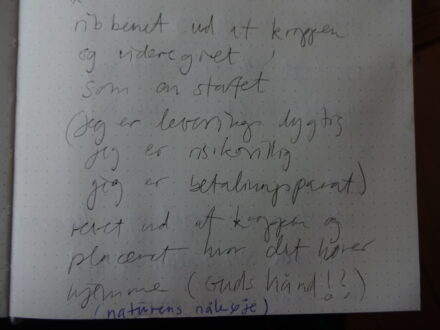 ribbenet ud af kroppen
og videregivet
som en stafet
(jeg er leveringsdygtig
jeg er risikovillig
jeg er betalingsparat)
revet ud af kroppen og
placeret hvor det hører
hjemme (Guds hånd!?)
(naturens nåleøje)